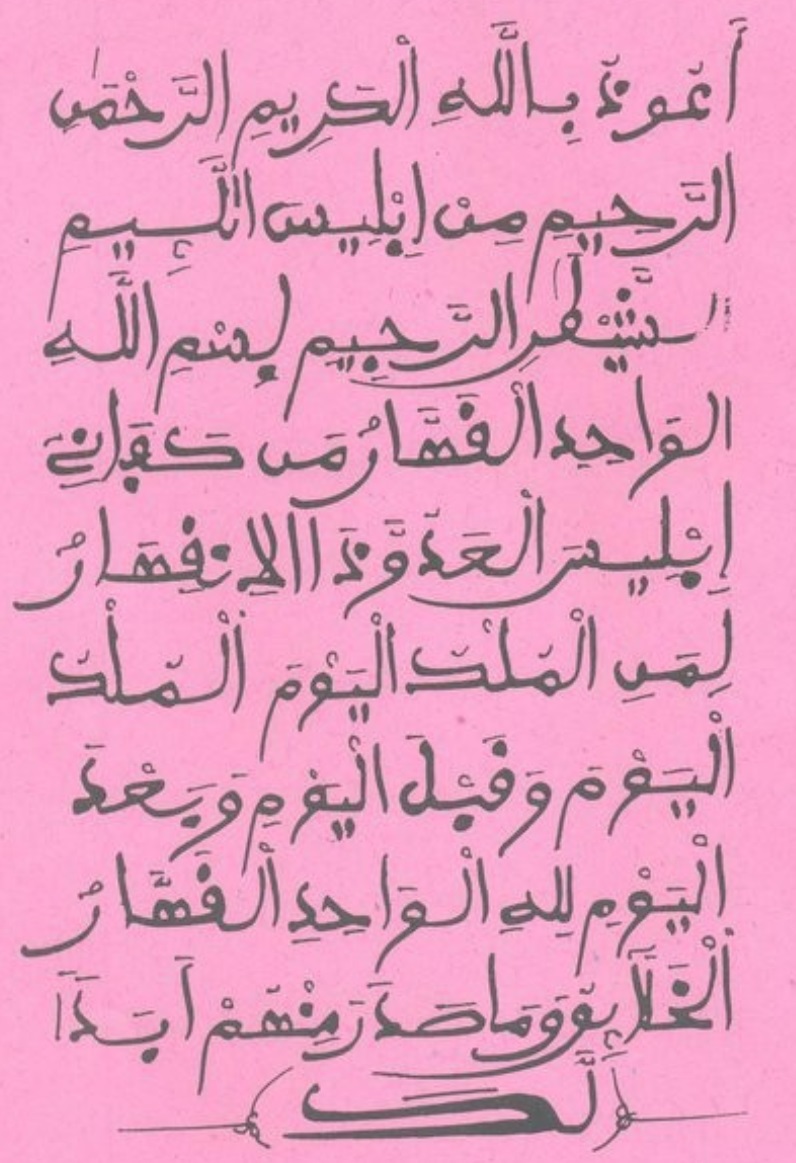 أَعُوذُ بِاللَّهِ الْكَرِيمِ الرَّحْمَٰنِ
الرَّحِيمِ مِنْ إِبْلِيسَ اللَّئِيمِ
الشَّيْطَٰنِ الرَّجِيمِ بِسْمِ اللَّهِ
الْوَاحِدِ الْقَهَّارُ مَن كَفَانِي
إِبْلِيسَ الْعَدُوَّ ذَا الِانْقِهَارُ
لِمَنِ الْمُلْكُ الْيَوْمَ الْمُلْكُ
الْيَوْمَ وَقَبْلَ الْيَوْمِ وَبَعْدَ
الْيَوْمِ لِلهِ الْوَاحِدِ الْقَهَّارُ
الْخَلَائِقِ وَمَا صَدَرَ مِنْهُمْ أَبَدًا
لَكَ